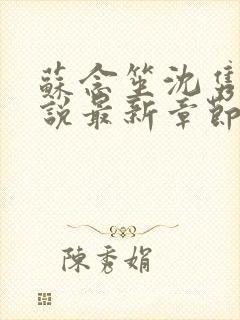 蘇念笙沈雋
說最新章節
陳秀娟